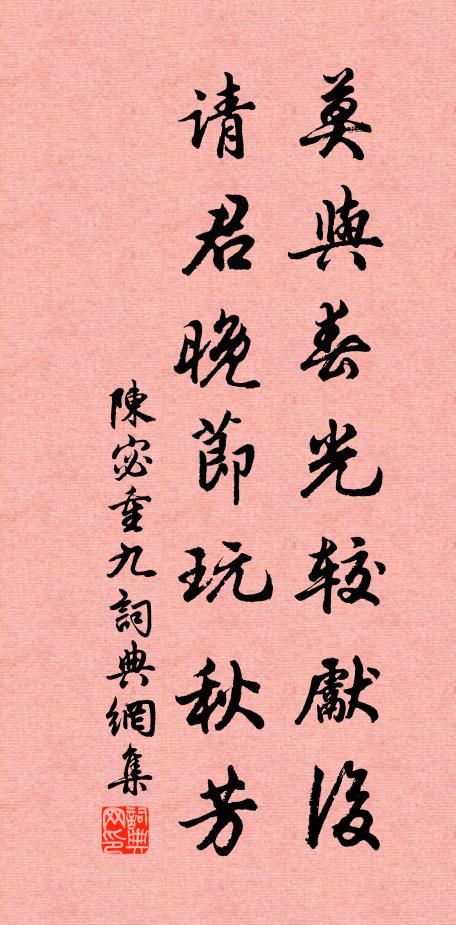 莫與春光較獻後
请君晚節玩秋芳
陳宓重九詞典網集
詞典网印